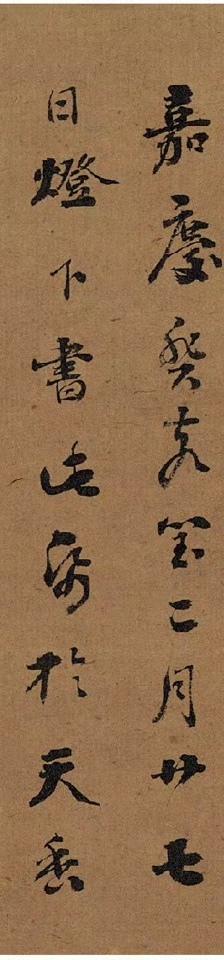 嘉慶癸亥閏二月廿七
日燈下書此於天香